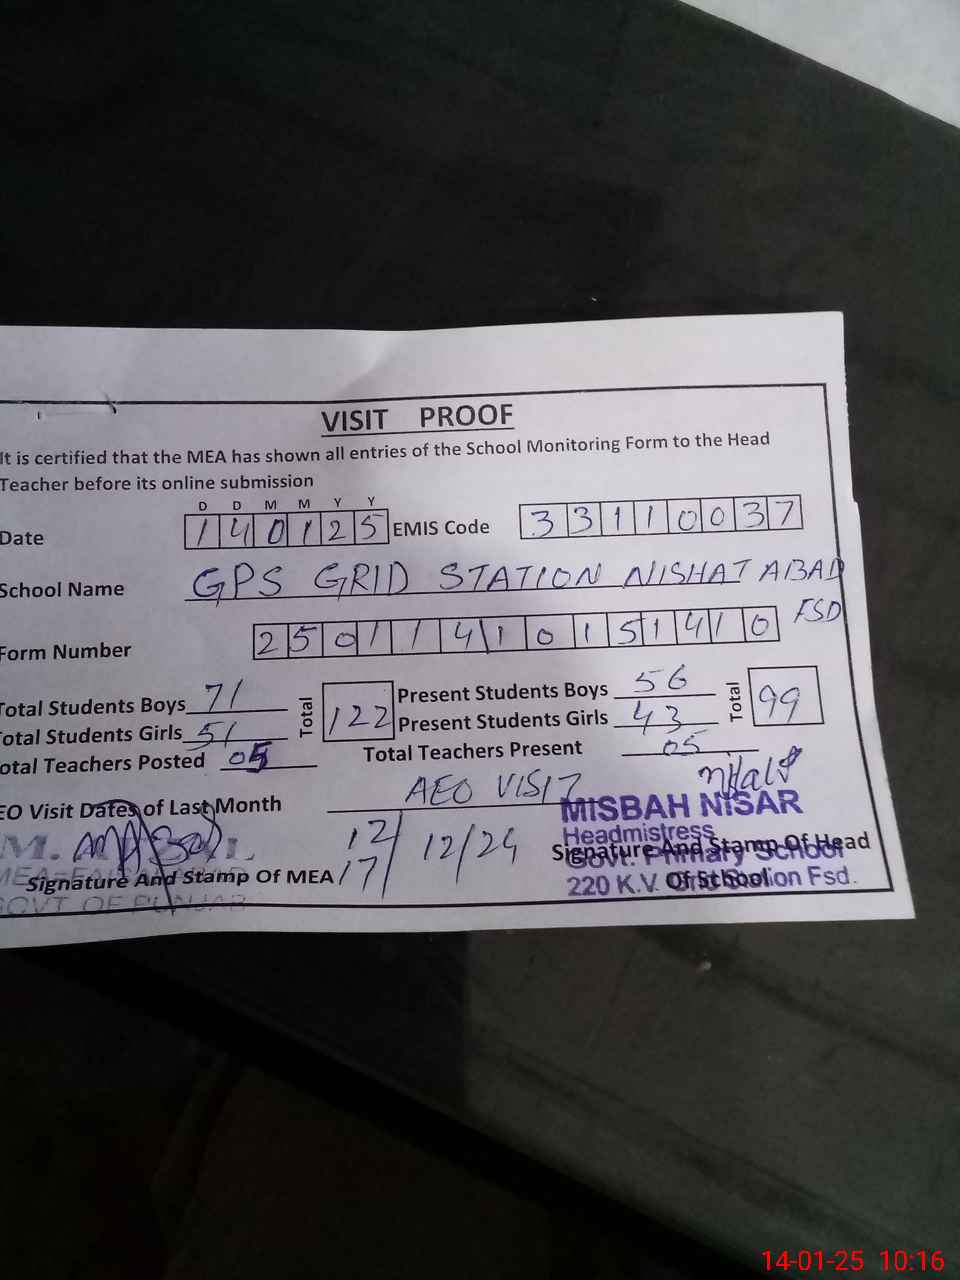 VISIT PROOF
It is certified that the MEA has shown all entries of the School Monitoring Form to the Head
Teacher before its online submission
D D M M Y Y
Date 1 4 0 1 2 5 EMIS Code 3 3 1 1 0 0 3 7
School Name GPS GRID STATION NISHATABAD
FSD
Form Number 2 5 0 1 1 4 1 0 1 5 1 4 1 0
Total Students Boys 71 Total 122 Present Students Boys 56 Total 99
Total Students Girls 51 Present Students Girls 43
otal Teachers Posted 05 Total Teachers Present 05
EO Visit Dates of Last Month AEO VISIT
12/17/12/24
MISBAH NISAR
Headmistress
Govt. Primary School
220 K.V. Fsd.
Signature And Stamp Of Head
Of School
Signature And Stamp Of MEA
GOVT. OF PUNJAB
14-01-25 10:16